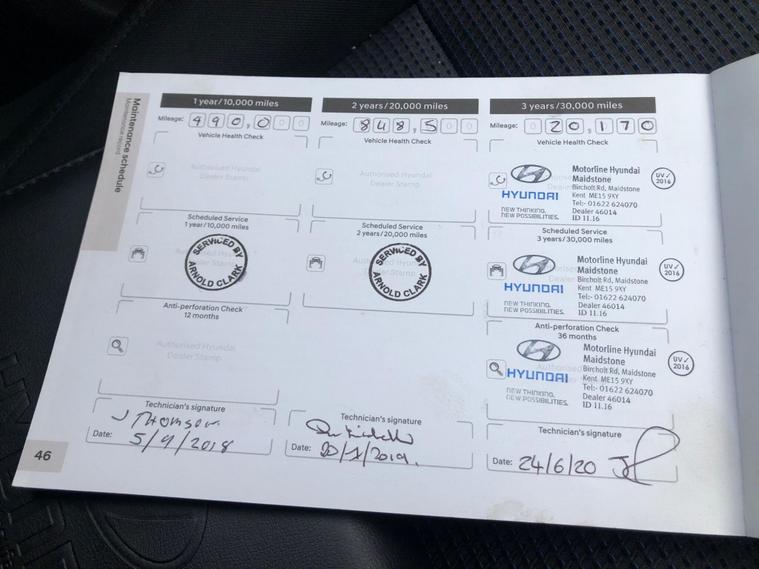 Maintenance schedule
Maintenance record
1 year/10,000 miles
Mileage: 490,000
Vehicle Health Check
Authorised Hyundai
Dealer Stamp
Scheduled Service
1 year/10,000 miles
SERVICED BY
ARNOLD CLARK
Anti-perforation Check
12 months
Authorised Hyundai
Dealer Stamp
Technician's signature
J Thomson
Date: 5/9/2018
2 years/20,000 miles
Mileage: 848,500
Vehicle Health Check
Authorised Hyundai
Dealer Stamp
Scheduled Service
2 years/20,000 miles
SERVICED BY
ARNOLD CLARK
Technician's signature
Date:
3 years/30,000 miles
Mileage: 020,170
Vehicle Health Check
HYUNDAI
NEW THINKING.
NEW POSSIBILITIES.
Motorline Hyundai
Maidstone
Bircholt Rd, Maidstone
Kent ME15 9XY
Tel:- 01622 624070
Dealer 46014
ID 11.16
UV✓
2016
Scheduled Service
3 years/30,000 miles
HYUNDAI
NEW THINKING.
NEW POSSIBILITIES.
Motorline Hyundai
Maidstone
Bircholt Rd, Maidstone
Kent ME15 9XY
Tel:- 01622 624070
Dealer 46014
ID 11.16
UV✓
2016
Anti-perforation Check
36 months
HYUNDAI
NEW THINKING.
NEW POSSIBILITIES.
Motorline Hyundai
Maidstone
Bircholt Rd, Maidstone
Kent ME15 9XY
Tel:- 01622 624070
Dealer 46014
ID 11.16
UV✓
2016
Technician's signature
Date: 24/6/20
46